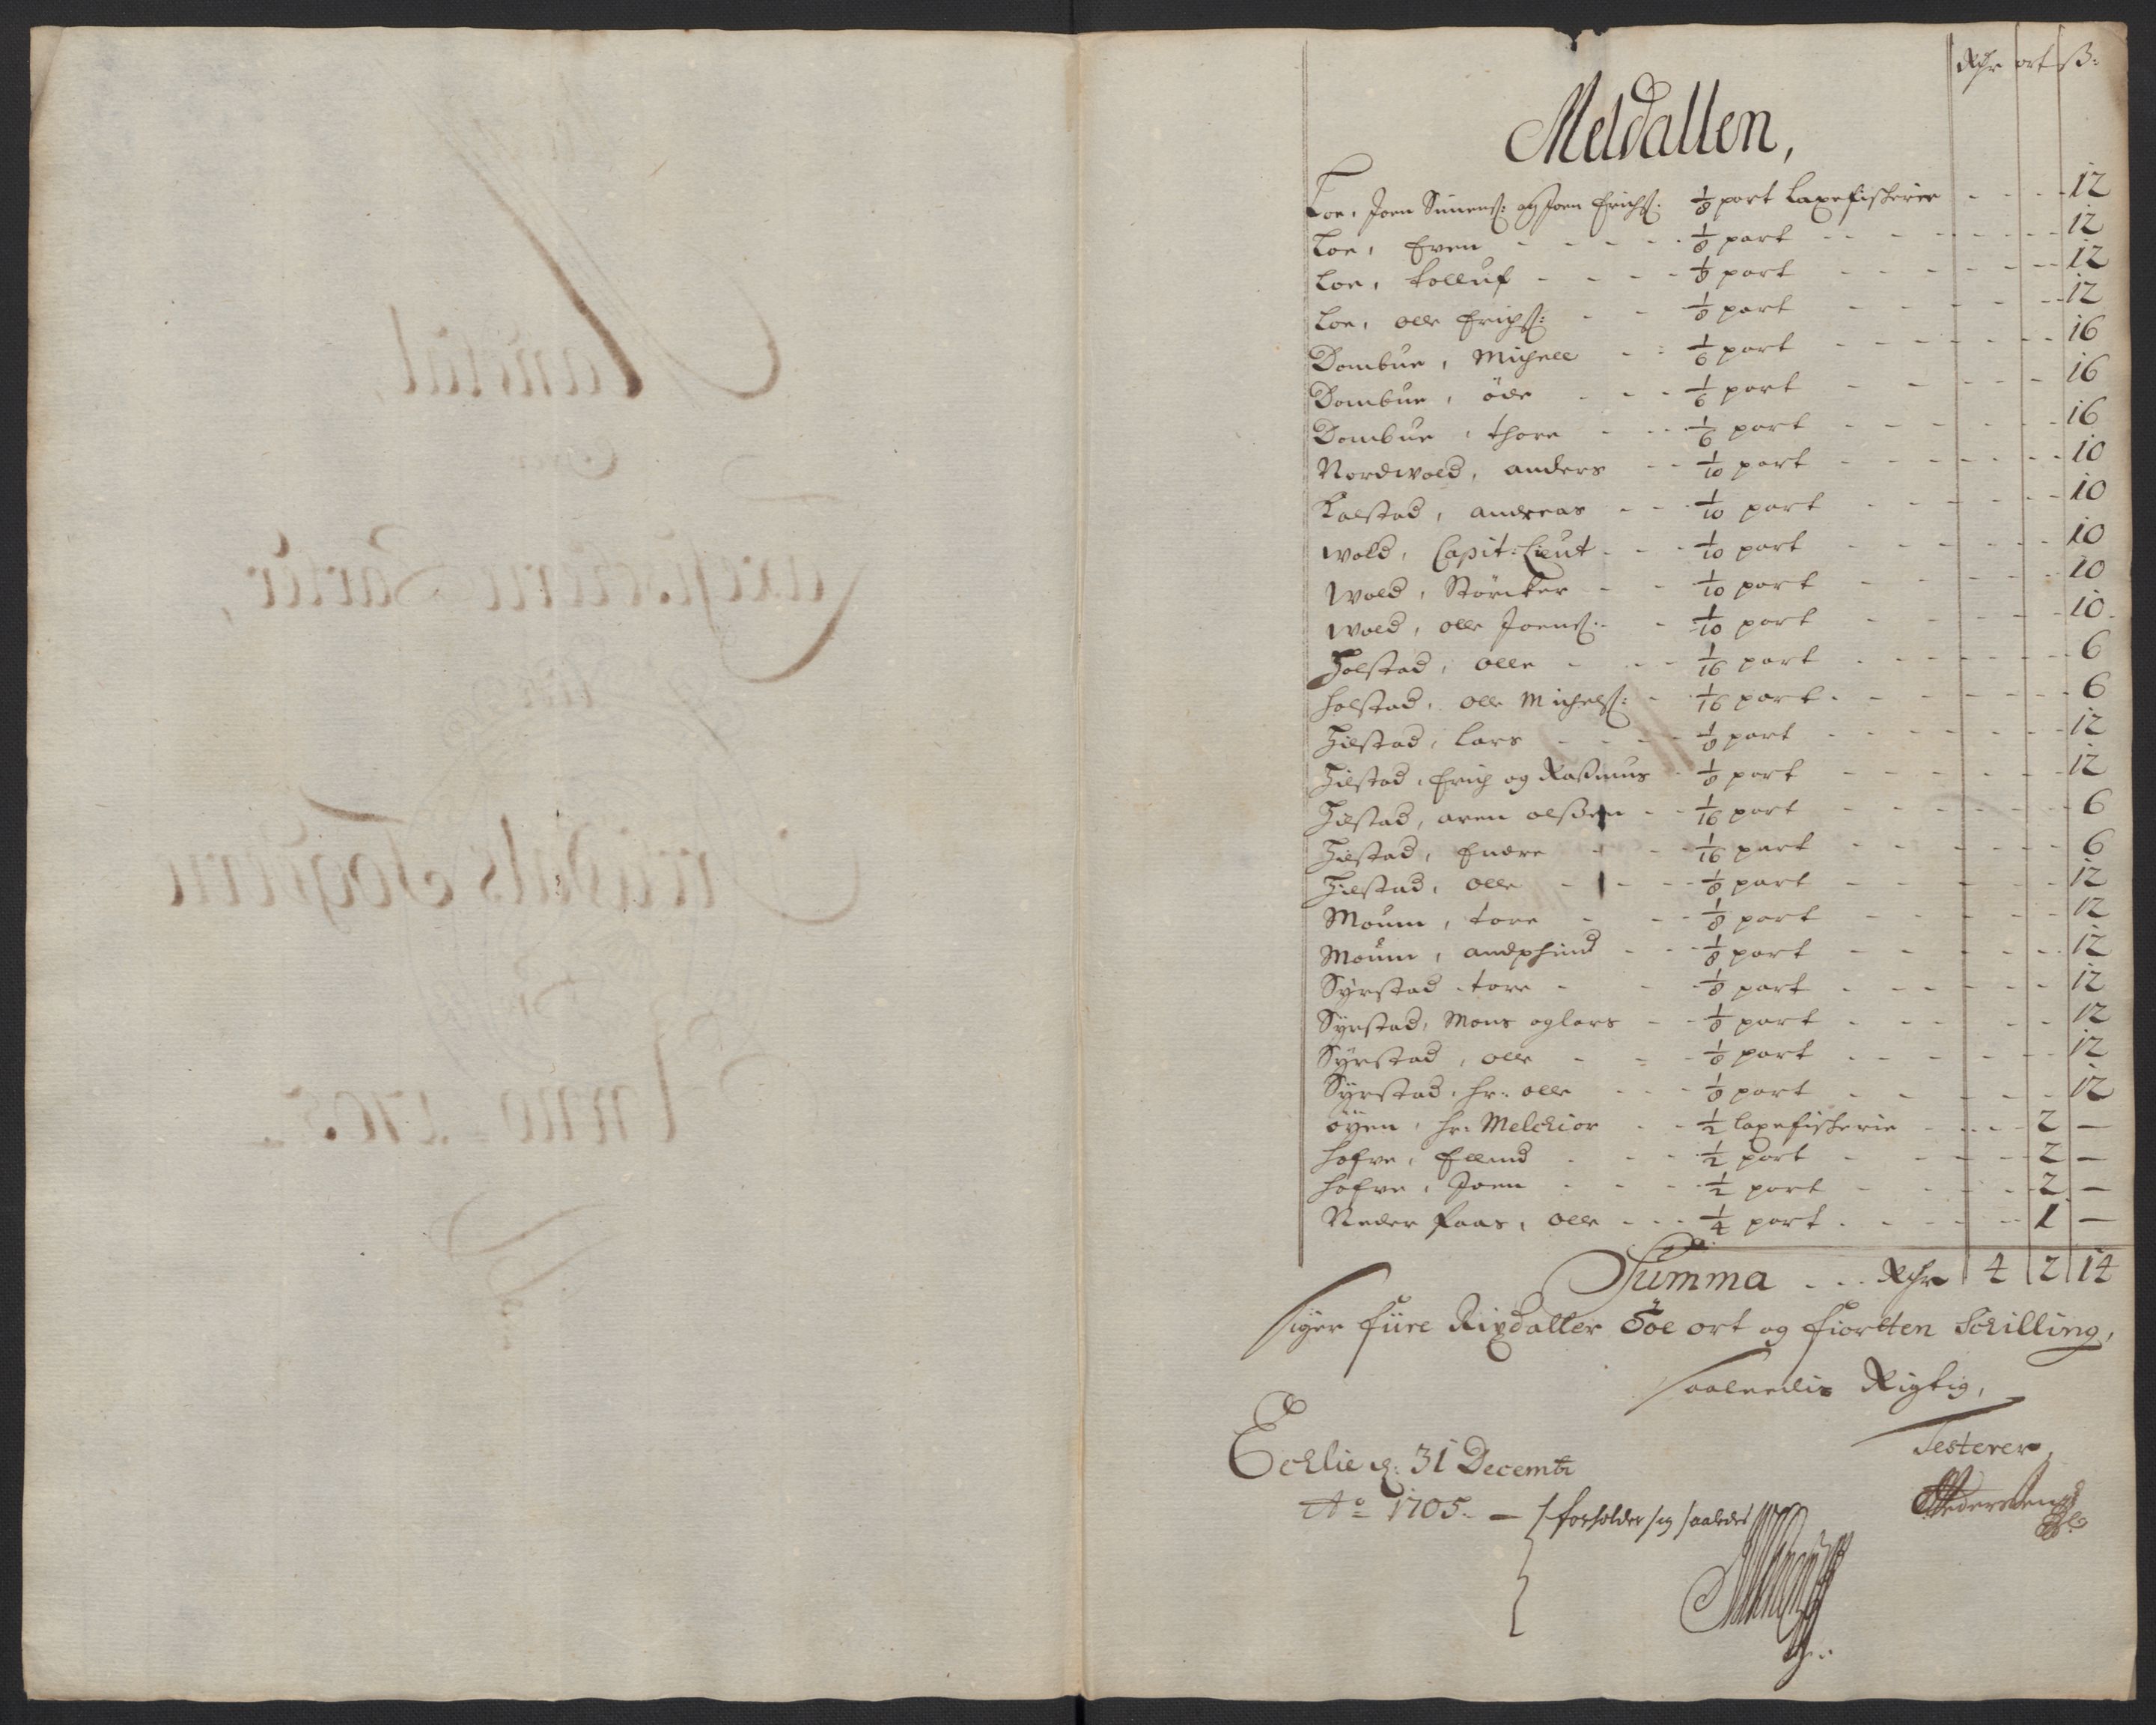 Rdr ort ß:
Meldallen,
Loe, Joen Simens: og Joen Erichs: 1/8 part Laxefischerie - - - 12
Loe, Even - - - - 1/8 part - - - 12
Loe, Tolluf - - - - 1/8 part - - - 12
Loe, olle Erichs: - - 1/8 part - - - 12
Dombue, Michell - - 1/6 part - - - 16
Dombue, öde - - - 1/6 part - - - 16
Dombue, thore - - - 1/6 part - - - 16
Nordwold, anders - - 1/10 part - - - 10
Kalstad, andreas - - 1/10 part - - - 10
wold, Capit: Lieut - - - 1/10 part - - - 10
Wold, Störcker - - 1/10 part - - - 10
Wold, olle Joens: - - 1/10 part - - - 10
Holstad, olle - - - 1/16 part - - - 6
Holstad, olle Michels: - 1/16 part - - - 6
Hilstad, Lars - - - - 1/8 part - - - 12
Hilstad, Erich og Rasmus - 1/8 part - - - 12
Hilstad, aren olssen - - 1/16 part - - - 6
Hilstad, Endre - - 1/16 part - - - 6
Hilstad, olle - - - - 1/8 part - - - 12
Moum, tore - - - 1/8 part - - - 12
Moum, andphind - - - 1/8 part - - - 12
Syrstad, tore - - - 1/8 part - - - 12
Syrstad, Mons og Lars - - 1/8 part - - - 12
Syrstad, olle - - - 1/8 part - - - 12
Syrstad, hr: olle - - - 1/8 part - - - 12
öyen, hr. Melchior - - 1/2 laxefischerie - - - 2 —
hofve, Ellend - - - 1/2 part - - - 2 —
hofve, Joen - - - - 1/2 part - - - 2 —
Neder Faas, olle - - - 1/4 part - - - 1 —
Summa - - - Rdr 4 2 14
siger fiire Rixdaller Toe ort og fiortten Schilling,
saaledis Rigtig,
Testerer
Ecklie d: 31 Decembr
Ao 1705. — forholder sig saaledes